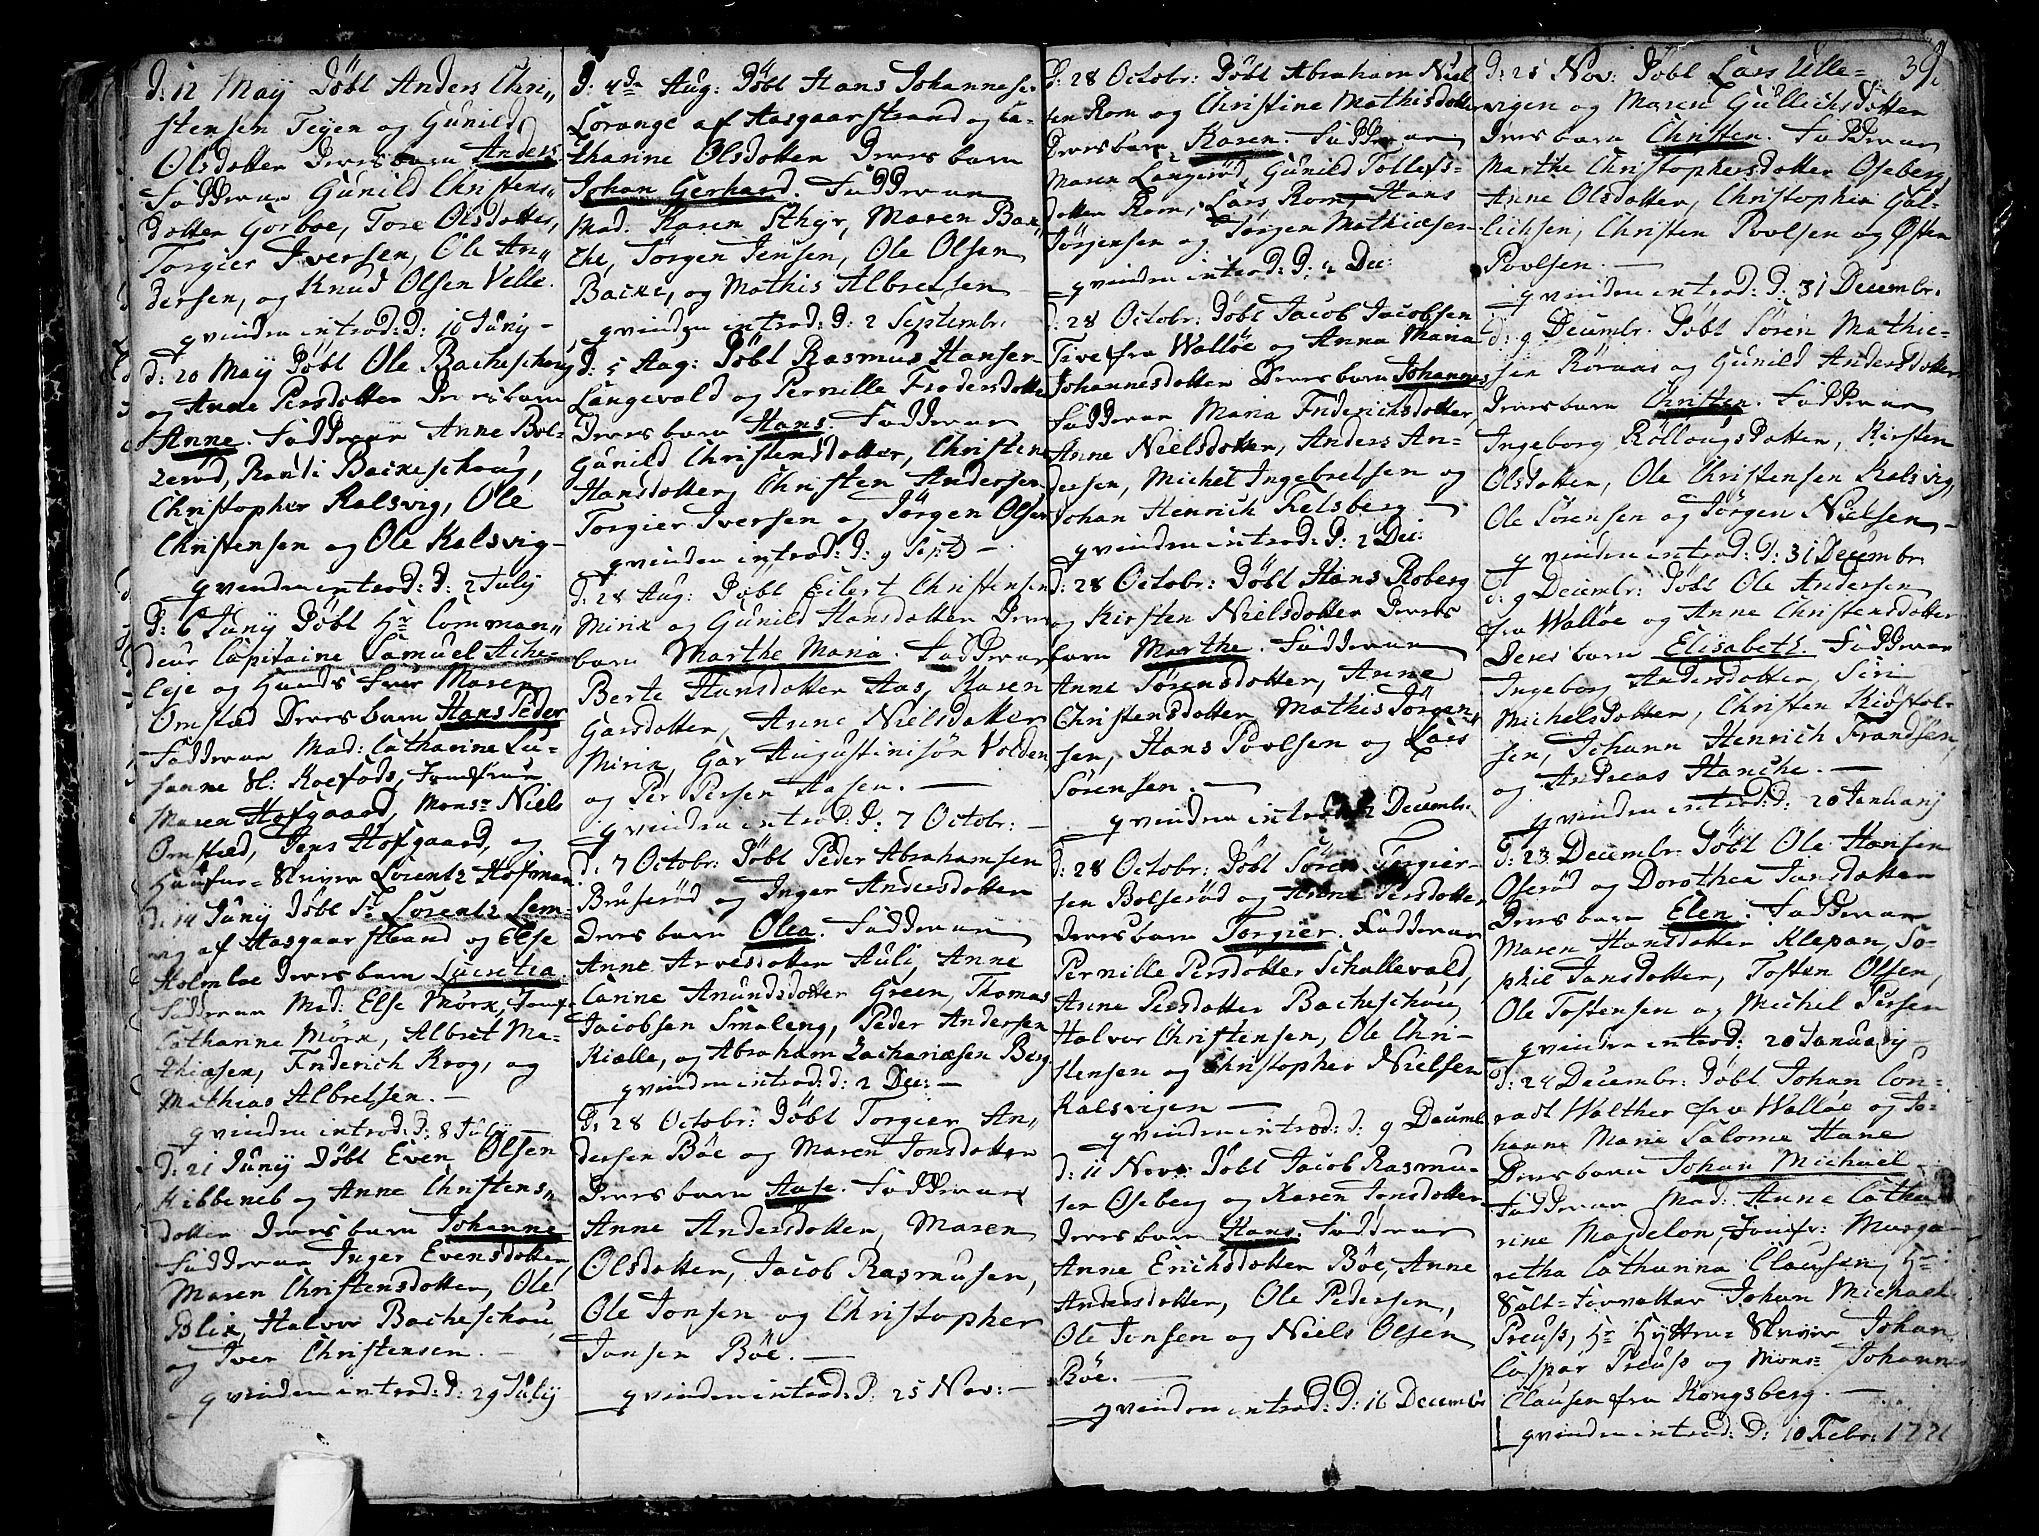 D: 12 Maÿ Døbt Anders Chri,,
stensen Teÿen og Gunild
Olsdotter Deres barn Anders
Fadderne Gunild Christens=
dotter Gorboe, Tore Olsdotter,
Torgier Iversen, Ole An,,
dersen, og Knud Olsen Velle.
qvinden introd: D: 10 Junÿ -
D: 20 Maÿ Døbt Ole Bacheschoug
og Anne Persdotter Deres barn
Anne. Fadderne Anne Bol-
zerød, Randi Backeschoug,
Christopher Kalsvig, Ole
Christensen og Ole Kalsvig -
qvinden introd: D: 2 Julÿ
D: 6 Junÿ Døbt Hr Comman,,
deur Capitaine Samuel Ache-
leje og Hands Frue Maren
Omsted Deres barn Hans Peder
Fadderne Mad: Catharine Su-
sanne Sl: Koefods, Jomfrue
Maren Hofgaard, Monsr Niels
Omsted, Jens Hofgaard, og
Skriver Lorentz Hofman
D: 14 Junÿ Døbt Sr Lorentz Sem-
vig af Aasgaarstrand og Else
Holmboe Deres barn Lucretia
Fadderne Mad: Else Mørk, Jomf:
Catharine Mørk, Albret Ma-
thiasen, Friderich Krog, og
Mathias Albretsen. -
qvinden introd: D: 8 Julÿ
D: 21 Junÿ Døbt Even Olsen
Kibbeneb og Anne Christens,,
dotter Deres barn Johanne
Fadderne Inger Evensdotter,
Maren Christensdotter, Ole
Blix, Halvor Bacheschou,
og Iver Christensen. -
qvinden introd: D: 29 Julÿ
D: 4de Aug: Døbt Hans Johannesen
Lorange af Aasgaarstrand og Ca-
tharine Olsdotter Deres barn
Johan Gerhard. Fadderne
Mad. Karen Sthyr, Maren Bac,,
che, Jørgen Jensen, Ole Olsen
Backe, og Mathis Albretsen
qvinden introd: D: 2 Septembr:
D: 5 Aug: Døbt Rasmus Hansen
Langevald og Pernille Fredersdotter
Deres barn Hans. Fadderne
Gunild Christensdotter, Christine
Hansdotter, Christen Andersen
Torgier Iversen og Jørgen Olsen
qvinden introd: D: 9 Sept -
D: 28 Aug: Døbt Eilert Christensen
Mirix og Gunild Hansdotter Deres
barn Marthe Maria. Fadderne
Berte Hansdotter Aas, Karen
Garsdotter, Anne Nielsdotter
Mirix, Gar Augustinisøn Volden,
og Per Persen Aasen. -
qvinden introd: D: 7 Octobr: -
D: 7 Octobr: Døbt Peder Abrahamsen
Bruserød og Inger Andersdotter
Deres barn Olea. Fadderne
Anne Arvesdotter Auli, Anne
Carine Anundsdotter Green, Thomas
Jacobsen Smaleng, Peder Andersen
Kiælle, og Abraham Zachariæsen Berg
qvinden introd: d: 2 Dec: -
D: 28 Octobr: Døbt Torgier An,,
dersen Bøe og Maren Jonsdotter
Deres barn Aase. Fadderne
Anne Andersdotter, Maren
Olsdotter, Jacob Rasmusen,
Ole Jonsen og Christopher
Jonsen Bøe. -
qvinden introd: D: 25 Nov: -
D: 28 Octobr: Døbt Abraham Niel
sen Rom og Christine Mathisdotter
Deres barn Karen. Fadderne
Maren Langerød, Gunild Tollefs=
dotter Rom, Lars Rom, Hans
Jørgensen og Jørgen Mathiesen
qvinden introd: D: 2 Dec:
D: 28 Octobr: Døbt Jacob Jacobsen
Tive fra Walløe og Anna Maria
Johannesdotter Deres barn Johannes
Fadderne Maria Friderichsdotter,
Anne Nielsdotter, Anders An=
dersen, Michel Ingebretsen og
Johan Henrich Felsberg -
qvinden introd: D: 2 Dec:
D: 28 Octobr: Døbt Hans Roberg
og Kirsten Nielsdotter Deres
barn Marthe. Fadderne
Anne Sørensdotter, Anne
Christensdotter Mathis Jørgen,,
sen, Hans Povlsen og Lars
Sørensen. -
qvinden introd: 2 Decembr:
D: 28 Octobr: Døbt Søren Torgier-
sen Bolserød og Anne Persdotter
Deres barn Torgier. Fadderne
Pernille Persdotter Schallevald,
Anne Persdotter Bacheschou,
Halvor Christensen, Ole Chri-
stensen og Christopher Nielsen
Kalsvigen -
qvinden introd: D: 9 Decembr
D: 11 Nov: Døbt Jacob Rasmu-
sen Oseberg og Karen Jonsdotter
Deres barn Hans. Fadderne
Anne Erichsdotter Bøe, Anne
Andersdotter, Ole Pedersen,
Ole Jonsen og Niels Olsen
Bøe. -
qvinden introd: D: 16 Decembr
39.
D: 25 Nov: Døbt Lars Ulle=
vigen og Maren Gullichsdotter
Deres barn Christen. Fadderne
Marthe Christophersdotter Oseberg,
Anne Olsdotter, Christopher Gul-
lichsen, Christen Povlsen og Østen
Povlsen. -
qvinden introd: D: 31 Decembr.
D: 9 Decembr. Døbt Søren Mathie-
sen Røraas og Gunild Andersdotter
Deres barn Christen. Fadderne
Ingeborg Rollougsdotter, Kirsten
Olsdotter, Ole Christensen Kalsvig,
Ole Sørensen og Jørgen Nielsen -
qvinden introd: D: 31 Decembr
D: 9 Decembr: Døbt Ole Andersen
fra Walløe og Anne Christensdotter
Deres barn Elisabeth. Fadderne
Ingeborg Andersdotter, Siri
Michelsdotter, Christen Kiøstol-
sen, Johann Henrich Frandsen,
og Andreas Hanche. -
qvinden introd: D: 20 Januarij
D: 23 Decembr: Døbt Ole Hansen
Oserød og Dorothea Jansdotter
Deres barn Elen. Fadderne
Maren Hansdotter Klepan, So-
phie Jansdotter, Tosten Olsen,
Ole Tostensen og Michel Persen
qvinden introd: 20 Januarij -
D: 24 Decembr: Døbt Johan Con-
radt Walther fra Walløe og Jo-
hanne Marie Salome Hane
Deres barn Johan Michael
Fadderne Mad: Anne Catha
rine Magdelon, Jomfr: Marga-
retha Catharina Clausen, Hr
Salt=Forvalter Johan Michael
Preuss, Hr Hÿtte= Skriver Johan
Caspar Preuss og Mons= Johannes
Clausen fra Kongsberg. -
qvinden introd: D: 10 Febr: 1771